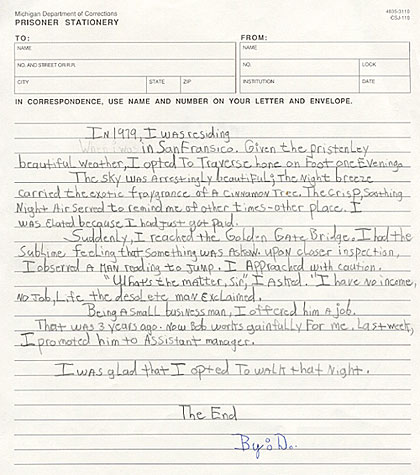 Michigan Department of Corrections
PRISONER STATIONERY
4835-3110
CSJ-110
TO:
FROM:
NAME
NAME
NO. AND STREET OR R.R.
NO.
LOCK
CITY
STATE
ZIP
INSTITUTION
DATE
IN CORRESPONDENCE, USE NAME AND NUMBER ON YOUR LETTER AND ENVELOPE.
In 1979, I was residing
in San Fransico. Given the pristenley
beautiful weather, I opted To Traverse home on Foot one Evening.
The sky was Arrestingly beautiful; The Night breeze
carried the exotic fraygrance of A Cinnamon Tree. The Crisp, Soothing
Night Air served to remind me of other times-other place. I
was Elated because I had Just got paid.
Suddenly, I reached the Golden Gate Bridge. I had the
Sublime feeling that something was Askew. Upon closer inspection,
I observed A MAN reading to Jump. I Approached with caution.
"What's the matter, Sir, I Asked. "I have no income,
NO Job, Life the desolete man Exclaimed.
Being A small business man, I offered him A job.
That was 3 years ago. Now Bob works gainfully For me. Last week,
I promoted him to Assistant manager.
I was glad that I opted To walk that Night.
The End
By: D.